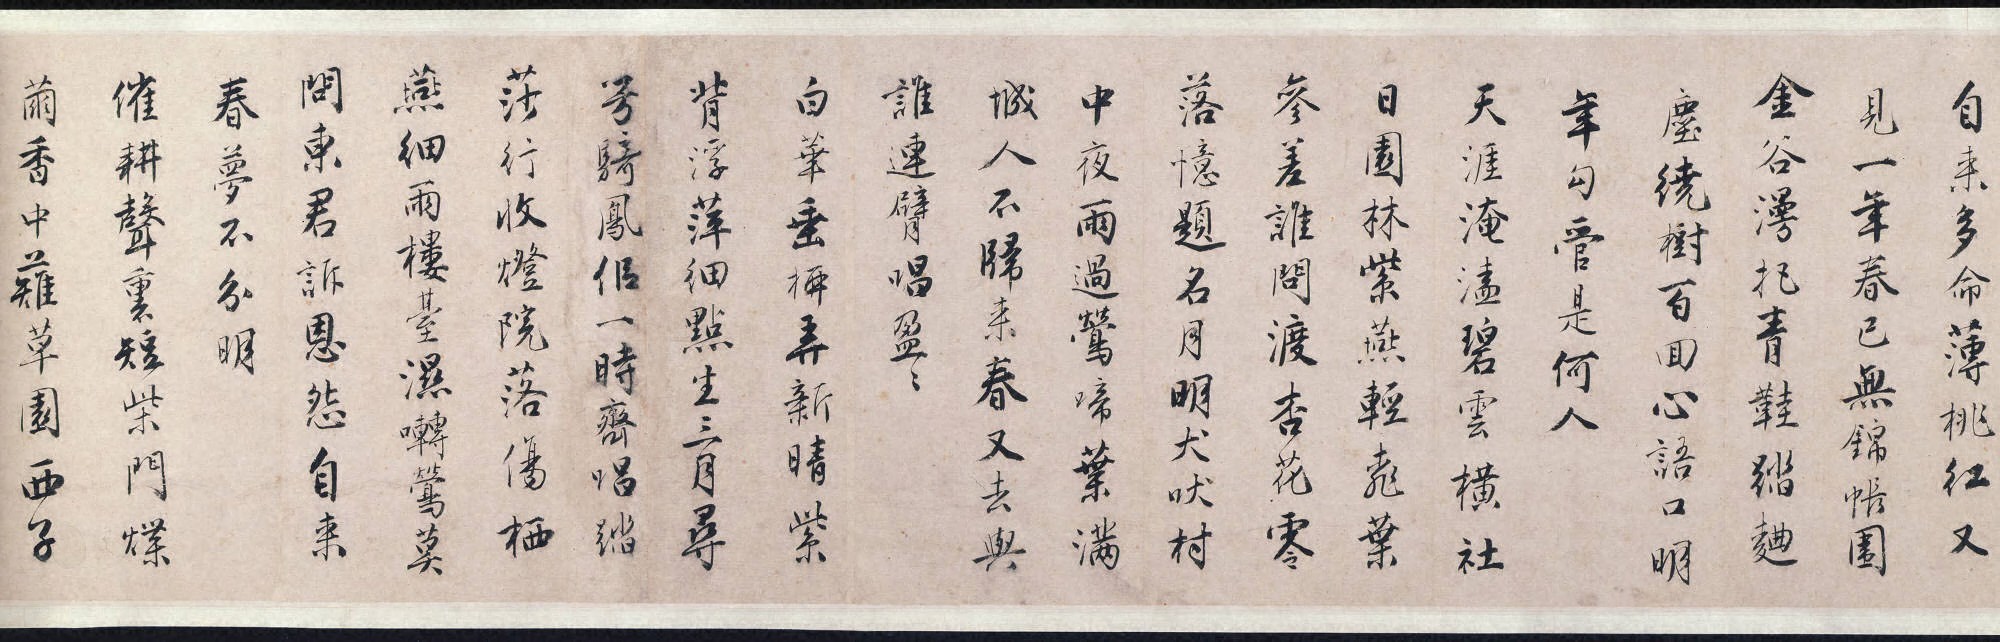 自来多命薄桃红又
見一年春已無錦帳圍
金谷漫把青鞋踏麯
塵繞樹百回心語口明
年勾管是何人
天涯淹溘碧雲横社
日園林紫燕輕飛葉
參差誰問渡杏花零
落憶題名月明犬吠村
中夜雨過鶯啼葉满
城人不歸来春又去與
誰連臂唱盈〻
白華垂𢫨弄新晴紫
背浮萍细點生三月尋
芳騎鳳侣一時齊唱踏
莎行收燈院落傷栖
燕细雨樓䑓濕囀鶯莫
問東君訴恩怨自来
春夢不分明
催耕聲裏短柴門煠
繭香中蕹草園西子